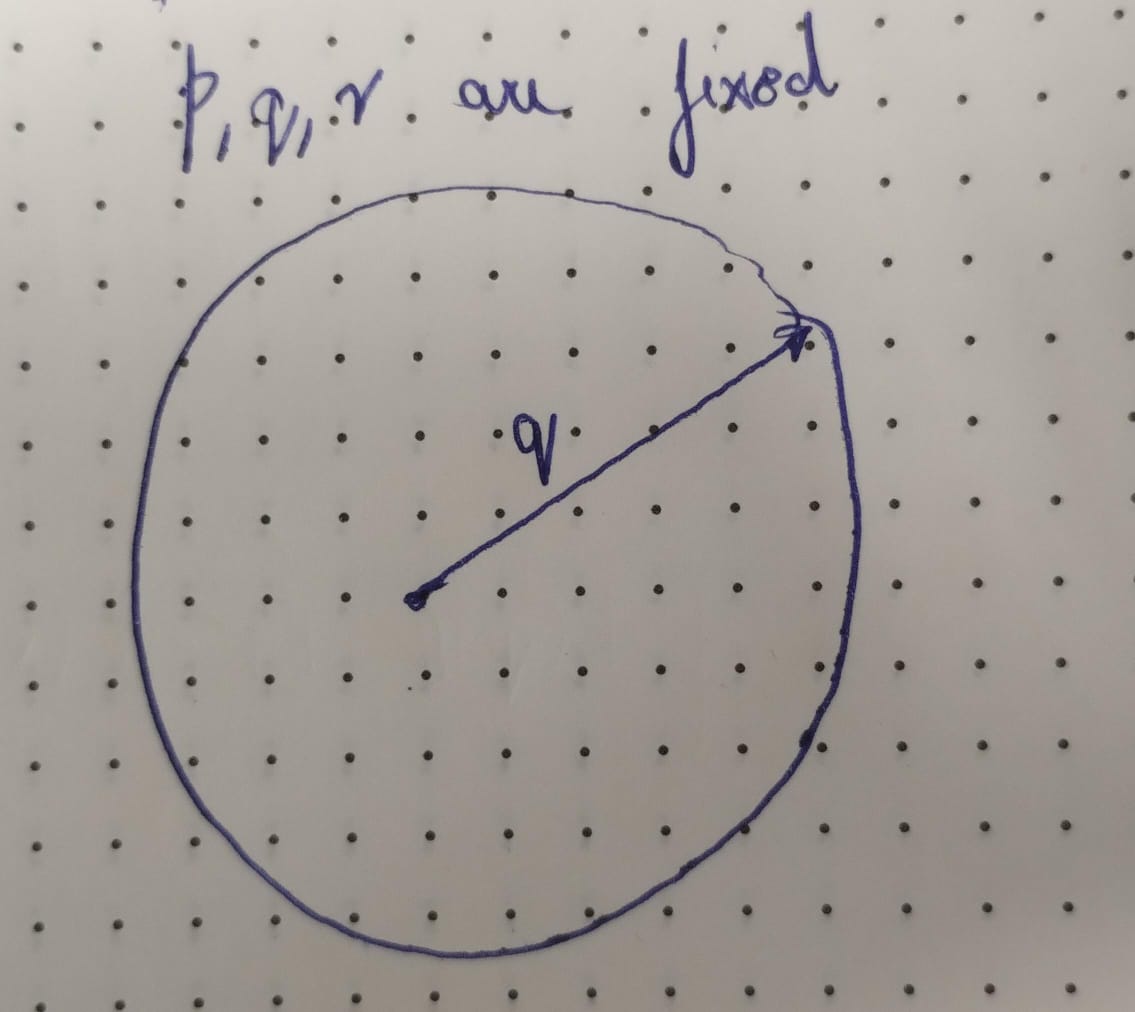 p, q, r are fixed
q